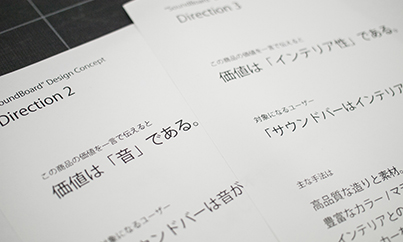 SoundBoard® Design Concept
Direction 2
この商品の価値を一言で伝えると
価値は「音」である。
対象になるユーザー
サウンドバーは音が
"SoundBoard® Design Concept
Direction 3
この商品の価値を一言で伝えると
価値は「インテリア性」である。
対象になるユーザー
「サウンドバーはインテリア
主な手法は
高品質な造りと素材。
豊富なカラー/マテ
インテリアとの